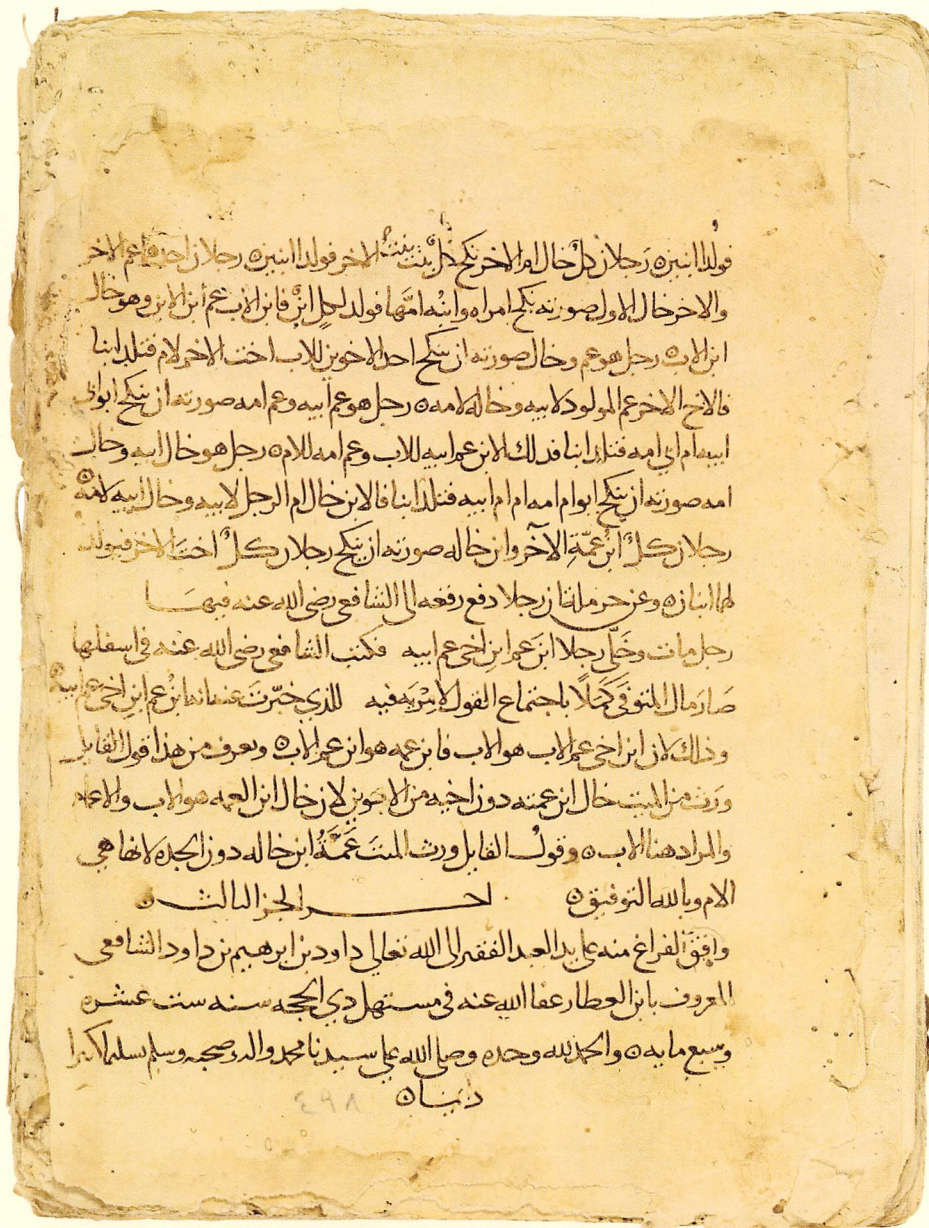 فولدا ابنين ه رجلان كل خال ام الاخر نكح كل بنت بنت الاخر فولدا ابنين ه رجلان احدهما عم الاخر
والاخر خال الاول صورته نكح امراه وابنه امها فولد لكل ابن فابن الاب عم ابن الابن وهو خال
ابن الاب ه رجل هو عم وخال صورته ان ينكح احد الاخوين للاب اخت الاخر لام فتلد ابنا
فالاخ الاخر عم المولود لابيه وخاله لامه ه رجل هو عم ابيه وعم امه صورته ان ينكح ابو ابي
ابيه ام ابي امه فتلد ابنا فذلك الابن عم ابيه للاب وعم امه للام ه رجل هو خال ابيه وخال
امه صورته ان ينكح ابو ام امه ام ام ابيه فتلد ابنا فالابن خال ام الرجل لابيه وخال ابيه لامه ه
رجلان كلٌ ابنُ عمّةِ الآخر وابن خاله صورته ان ينكح رجلان كلٌ اختَ الاخر فيولد
لهما ابنان ه وعن حرملة ان رجلا دفع رقعه الى الشافعي رضى الله عنه فيها
رجل مات وخلّى رجلا ابنَ عم ابنِ اخى عم ابيه فكتب الشافعي رضى الله عنه في اسفلها
صَارَ مال المتوفَّى كَمَلًا باجتماع القول لا مِرْيَه فيه للذي خبّرتَ عنه انه ابنُ عم ابنِ اخى عم ابيه
وذلك لان ابن اخى عم الاب هو الاب فابن عمه هو ابن عم الاب ه ويعرف من هذا قول القايل
ورث من الميت خال ابن عمته دون اخيه من الابوين لان خال ابن العمه هو الاب والاعمام
والمراد هنا الاب ه وقولُ القايل ورث الميتَ عَمَّةُ ابن خاله دون الجده لانها هي
الام وبالله التوفيق ه اخر الجز الثالث ه
وافق الفراغ منه على يد العبد الفقير الى الله تعالى داود بن ابرهيم بن داود الشافعي
المعروف بابن العطار عفا الله عنه في مستهل ذي الحجه سنه ست عشره
وسبع مايه ه والحمد لله وحده وصلى الله على سيدنا محمد واله وصحبه وسلم تسليما كثيرا
٤٩٨